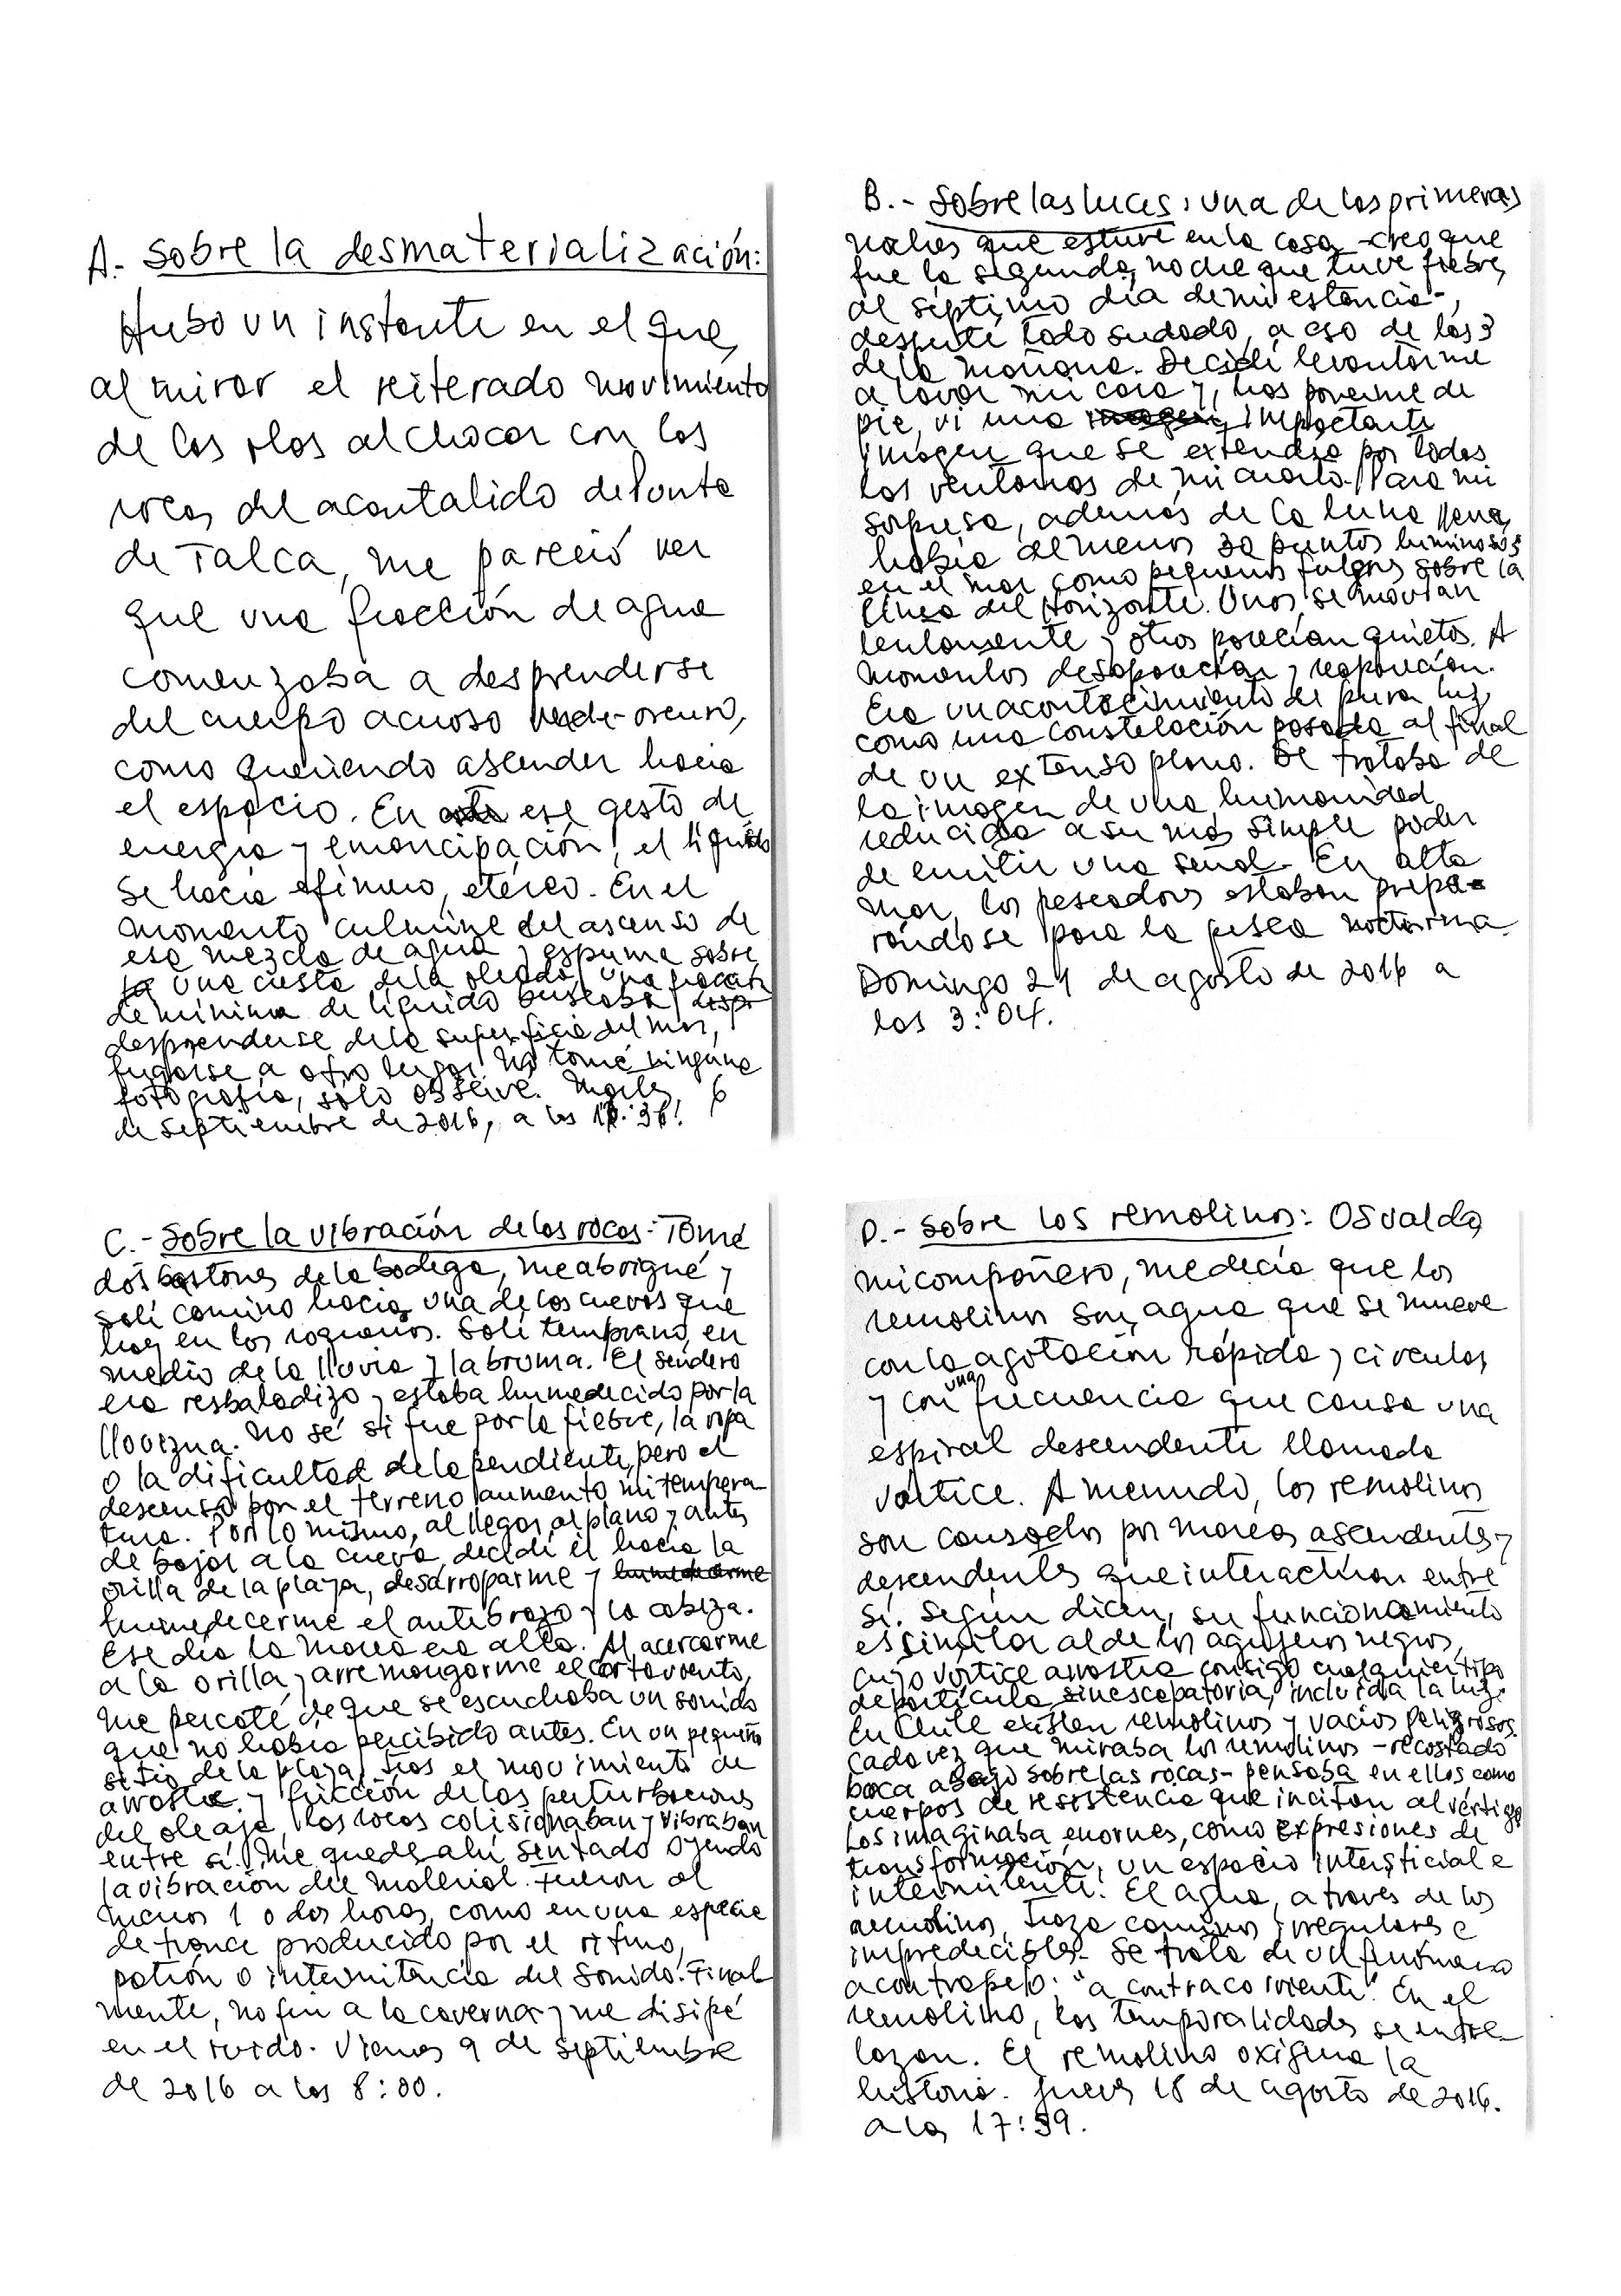 A.- Sobre la desmaterialización:
Hubo un instante en el que,
al mirar el reiterado movimiento
de las olas al chocar con las
rocas del acantalido de Punta
de Talca, me pareció ver
que una fracción de agua
comenzaba a desprenderse
del cuerpo acuoso verde-oscuro,
como queriendo ascender hacia
el espacio. En ese gesto de
energía y emancipación, el líquido
se hacía efímero, etéreo. En el
momento culmine del ascenso de
esa mezcla de agua y espuma sobre
una cresta de la oleada, una fracción
de mínima de líquido buscaba
desprenderse de la superficie del mar,
fugarse a otro lugar. No tomé ninguna
fotografía, sólo observé. Martes, 6
de septiembre de 2016, a las
B.- Sobre las luces: una de las primeras
noches que estuve en la casa -creo que
fue la segunda noche que tuve fiebre,
al séptimo día de mi estancia-,
desperté todo sudado, a eso de las 3
de la mañana. Decidí levantarme
a lavar mi cara y, tras ponerme de
pie, vi una impactante
imagen que se extendía por todas
las ventanas de mi cuarto. Para mi
sorpresa, además de la luna llena,
había al menos 30 puntos luminosos
en el mar como pequeños fulgores sobre la
línea del horizonte. Unos se movían
lentamente y otros parecían quietos. A
momentos desaparecían y reaparecían.
Era un acontecimiento de pura luz,
como una constelación posada al final
de un extenso plano. Se trataba de
la imagen de una humanidad
reducida a su más simple poder
de emitir una señal. En alta
mar, los pescadores estaban prepa-
rándose para la pesca nocturna.
Domingo 21 de agosto de 2016 a
las 3:04.
C.- Sobre la vibración de las rocas: Tomé
dos bastones de la bodega, me abrigué y
salí camino hacia una de las cuevas que
hay en los roqueríos. Salí temprano, en
medio de la lluvia y la bruma. El sendero
era resbaladizo y estaba humedecido por la
llovizna. No sé si fue por la fiebre, la ropa
o la dificultad de la pendiente, pero el
descenso por el terreno aumento mi tempera-
tura. Por lo mismo, al llegar al plano y antes
de bajar a la cueva, decidí ir hacia la
orilla de la playa, desarroparme y humedecerme
humedecerme el antebrazo y la cabeza.
Ese día la marea era alta. Al acercarme
a la orilla y arremangarme el cortaviento,
me percaté de que se escuchaba un sonido
que no había percibido antes. En un pequeño
sitio de la playa, tras el movimiento de
arrastre y fricción de las perturbaciones
del oleaje, las rocas colisionaban y vibraban
entre sí. Me quedé ahí sentado oyendo
la vibración del material. Fueron al
menos 1 o dos horas, como en una especie
de trance producido por el ritmo,
patrón o intermitencia del sonido. Final-
mente, no fui a la caverna y me disipé
en el ruido. Viernes 9 de septiembre
de 2016 a las 8:00.
D.- Sobre los remolinos: Osvaldo,
mi compañero, me decía que los
remolinos son agua que se mueve
con la agitación rápida y círculos
y con una frecuencia que causa una
espiral descendente llamada
vórtice. A menudo, los remolinos
son causados por mareas ascendentes y
descendentes que interactúan entre
sí. Según dicen, su funcionamiento
es similar al de los agujeros negros,
cuyo vórtice arrastra consigo cualquier tipo
de partícula sin escapatoria, incluida la luz.
En Chile existen remolinos y vacíos peligrosos.
Cada vez que miraba los remolinos -recostado
boca abajo sobre las rocas- pensaba en ellos como
cuerpos de resistencia que incitan al vértigo.
Los imaginaba enormes, como expresiones de
transformación, un espacio intersticial e
intermitente. El agua, a través de los
remolinos, traza caminos irregulares e
impredecibles. Se trata de un fenómeno
a contrapelo: "a contracorriente". En el
remolino, las temporalidades se entre-
lazan. El remolino oxigena la
historia. Jueves 18 de agosto de 2016.
a las 17:59.